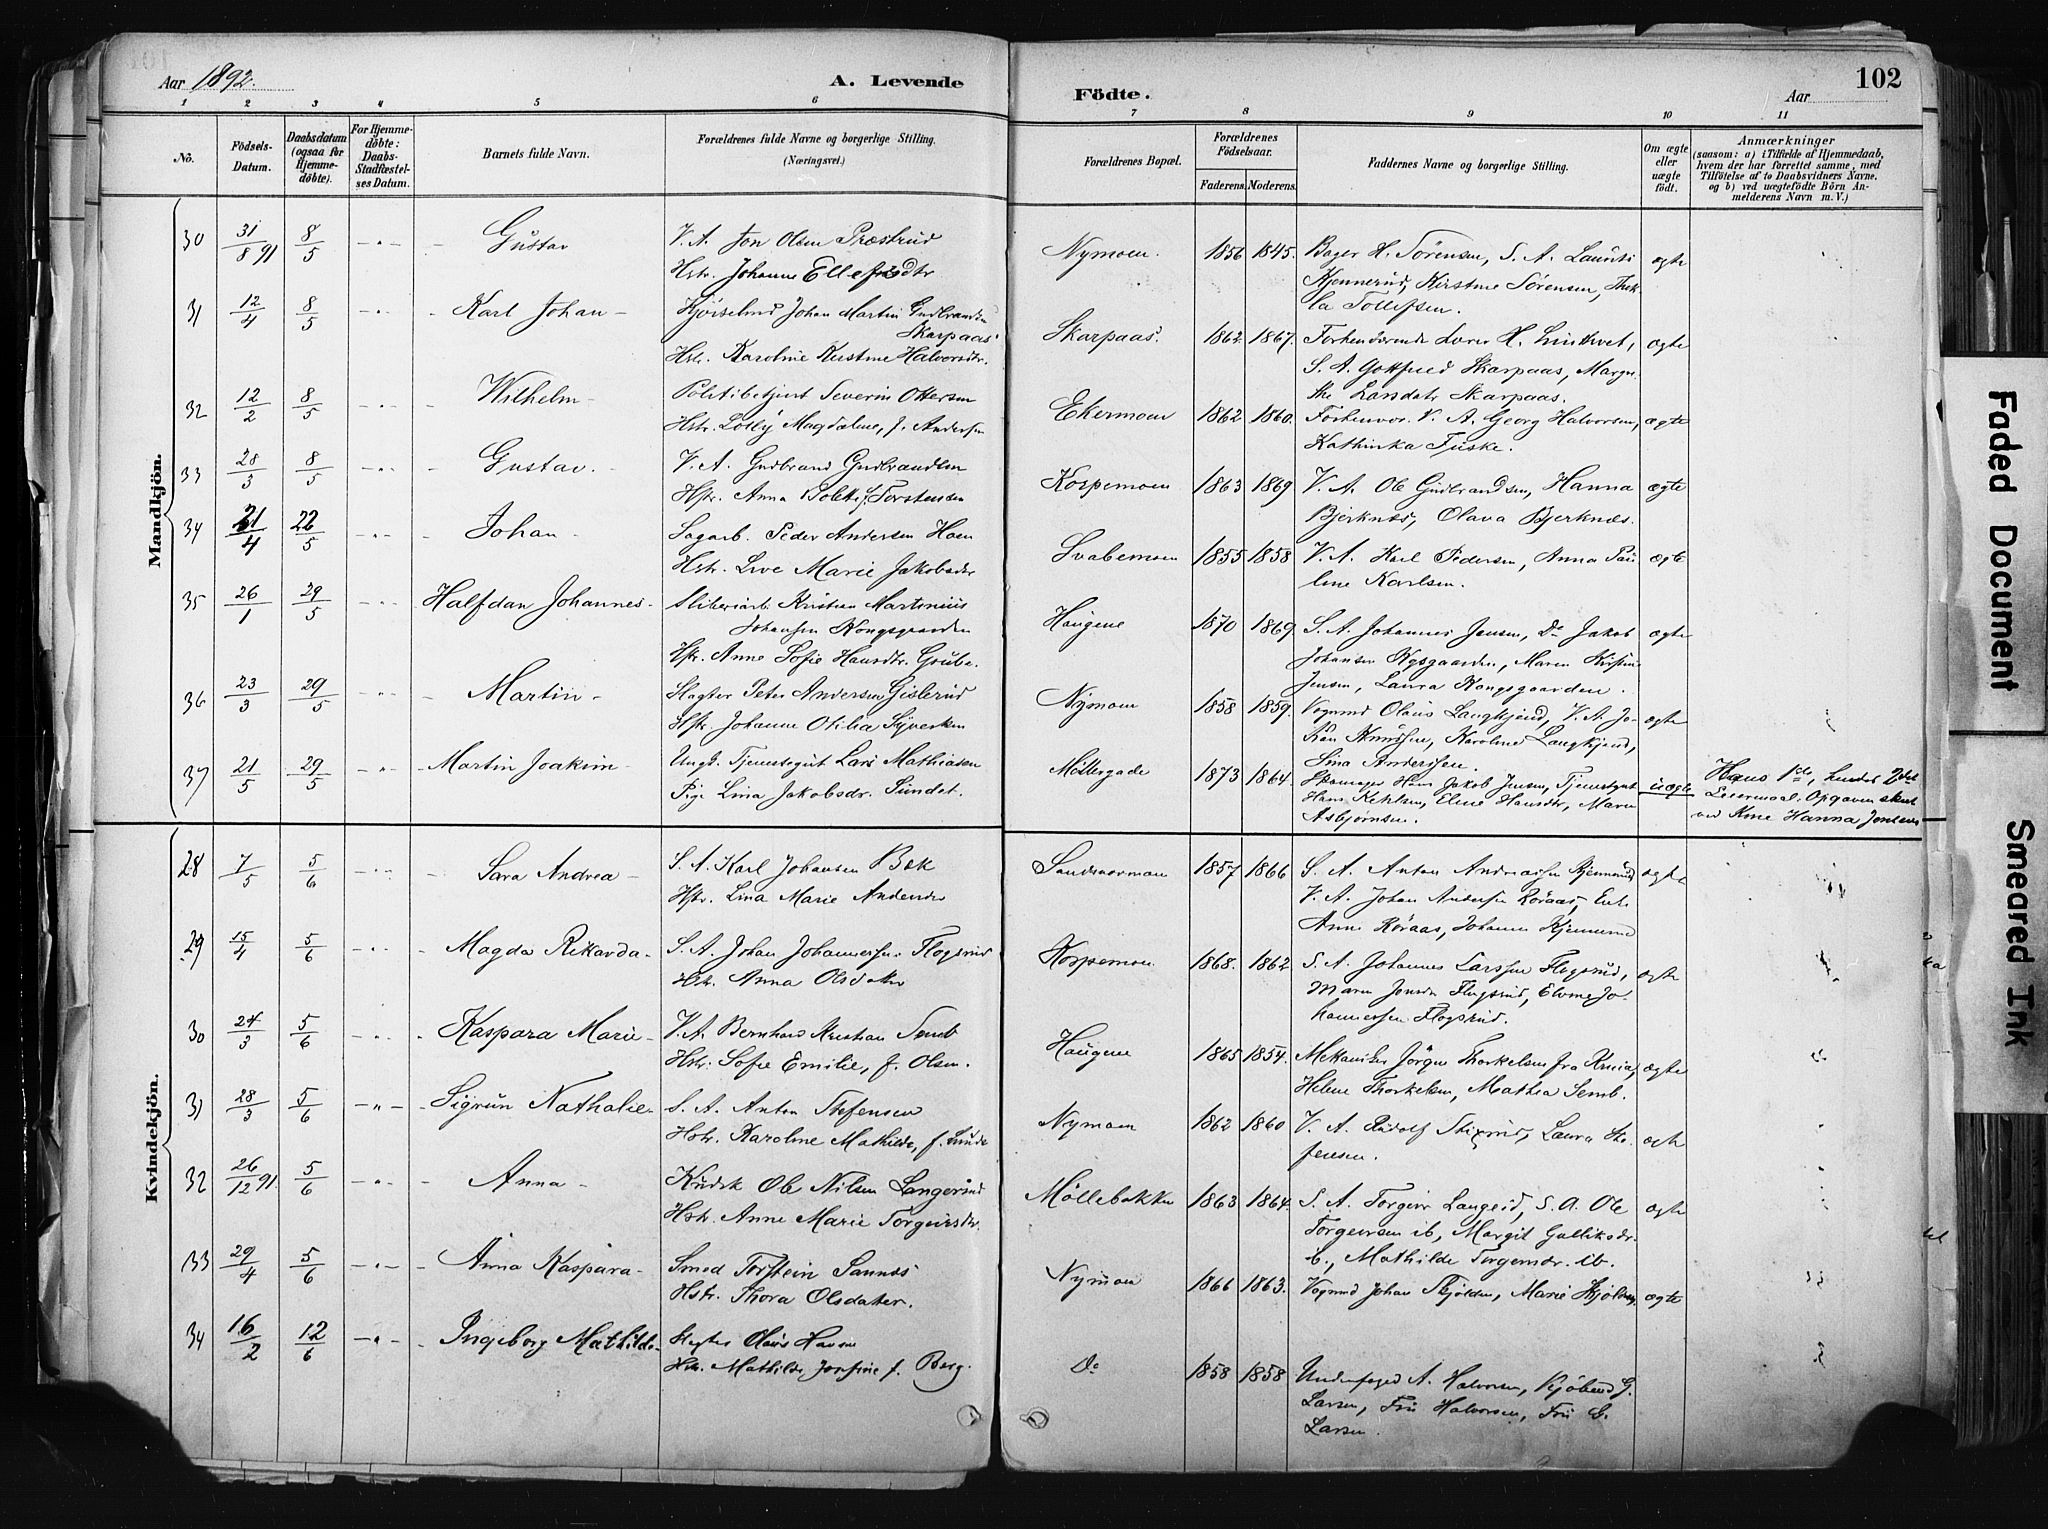 Aar 1892.
A. Levende
Födte.
Aar
102
1 2 3 4 5 6 7 8 9 10 11
No.
Födsels-Datum.
Daabsdatum (ogsaa for Hjemme-döbte).
For Hjemme-döbte: Daabs-Stadfæstel-ses Datum.
Barnets fulde Navn.
Forældrenes fulde Navne og borgerlige Stilling. (Næringsvei.)
Forældrenes Bopæl.
Forældrenes Födselsaar.
Faderens. Moderens.
Faddernes Navne og borgerlige Stilling.
Om ægte eller uægte födt.
Anmærkninger
(saasom: a) i Tilfælde af Hjemmedaab,
hvem der har forrettet samme, med
Tilföielse af to Daabsvidners Navne.
og b) ved uægtefödte Börn An-
melderens Navn m. V.)
Mandkjön.
30 31/8 91 8/5 Gustav V. A. Jon Olsen Præstrud Nymoen. 1856 1845. Bager H. Sörensen, S. A. Lauritz ægte
Hstr. Johanne Ellefsdtr Kjennerud, Kirstine Sörensen, Thek-
la Tollefsen.
31 12/4 8/5 Karl Johan Kjörselmd Johan Martin Gudbrandsen Skarpaas. 1862 1867. Forhenværende Lærer H. Lindtvet, ægte
Skarpaas
Hstr. Karoline Kirstine Halvorsdtr. S. A. Gotfred Skarpaas, Margre-
the Skarpaas.
32 12/2 8/5 Wilhelm Politibetjent Severin Ottersen Ekermoen 1862 1860. Forhenvær. V. A. Georg Halvorsen, ægte
Hstr. Magdalene, f. Andersen Kathinka Fuske.
33 28/3 8/5 Gustav. V. A. Gudbrand Gudbrandsen Korpemoen 1863 1869 V. A. Ole Gudbrandsen, Hanna ægte
Hstr. Anna f. Torstensen Bjerknæs, Olava Bjerknæs.
34 21/4 22/5 Johan Sagarb. Peder Andersen Hoen Svabemoen 1855 1858 V. A. Karl Pedersen, Anna Pau- ægte
Hstr. Live Marie Jakobsdtr line Karlsen.
35 26/1 29/5 Halfdan Johannes Sliberiarb. Kristian Martinius Haugene 1870 1869. S. A. Johannes Jensen, Do Jakob ægte
Johansen Kongsgaarden Johansen Nysgaarden, Maren Kirstine
Hstr. Anne Sofie Hansdtr. Grube. Jensen, Laura Kongsgaarden.
36 23/3 29/5 Martin Slagter Peter Andersen Gislerud Nymoen 1858 1859. Vognmd Olaus Langkjend, V. A. Jo- ægte
Hstr. Johanne Otilia Syversen Knudsen, Karoline Langkjend,
Lina Andersen.
37 21/5 29/5 Martin Joakim Ungk. Tjenestegut Lars Mathiasen Möllergade 1873 1864. Hans Jakob Jensen, Tjenestegut uægte Hans 1ste, hendes 2det
Pige Lina Jakobsdr. Sundet. Hans Kihlsen, Eline Hansdtr, Maren Leiermaal. Opgaven skeet
Asbjørnsen. ved Kone Hanna Jonsens
Kvindekjön.
28 7/5 5/6 Sara Andrea S. A. Karl Johansen Bæk Sandsværmoen 1857 1866 S. A. Anton Andreassen Kjennerud, ægte
Hstr. Lina Marie Andersdtr V. A. Johan Andersen Röraas, Enke
Anne Röraas, Johanne Kjennerud
29 15/4 5/6 Magda Rikarda S. A. Johan Johannessen Flogsrud Korpemoen. 1868. 1862 S. A. Johannes Larssen Flogsrud, ægte
Hstr. Anna Olsdatter Maren Jonsdr Flogsrud, Elvine Jo-
hannessen Flogsrud.
30 24/3 5/6 Kaspara Marie V. A. Bernhard Kristian Semb Haugene 1865 1854. Mekaniker Jörgen Thorkelsen fra Rusia, ægte
Hstr. Sofie Emilie, f. Olsen. Helene Thorkelsen, Mathea Semb.
31 28/3 5/6 Sigrun Nathalie S. A. Anton Stefensen Nymoen 1862 1860 V. A. Rudolf Stixrud, Laura Ste- ægte
Hstr. Karoline Mathilde, f. Lunde fensen.
32 26/12 91. 5/6 Anna Kudsk Ole Nilsen Langerud Möllebakken 1863 1864. S. A. Torgeir Langeid, S. A. Ole ægte
Hstr. Anne Marie Torgeirsdtr. Torgeirsen ib, Margit Galliksdr.
ib., Mathilde Torgeirsdr. ib.
33 29/4 5/6 Anna Kaspara Smed Torstein Sannes Nymoen 1866 1863. Vognmd Johan Skjölden, Marie Skjölden. ægte
Hstr. Thora Olsdatter.
34 16/2 12/6 Ingeborg Mathilde Slagter Olaus Hansen Do 1858 1858 Underfoged A. Halvorsen, Kjöbmd G.
Hstr. Mathilde Josefine f. Berg. Larsen, Fru Halvorsen, Fru G.
Larsen.
Faded Document
Smeared Ink